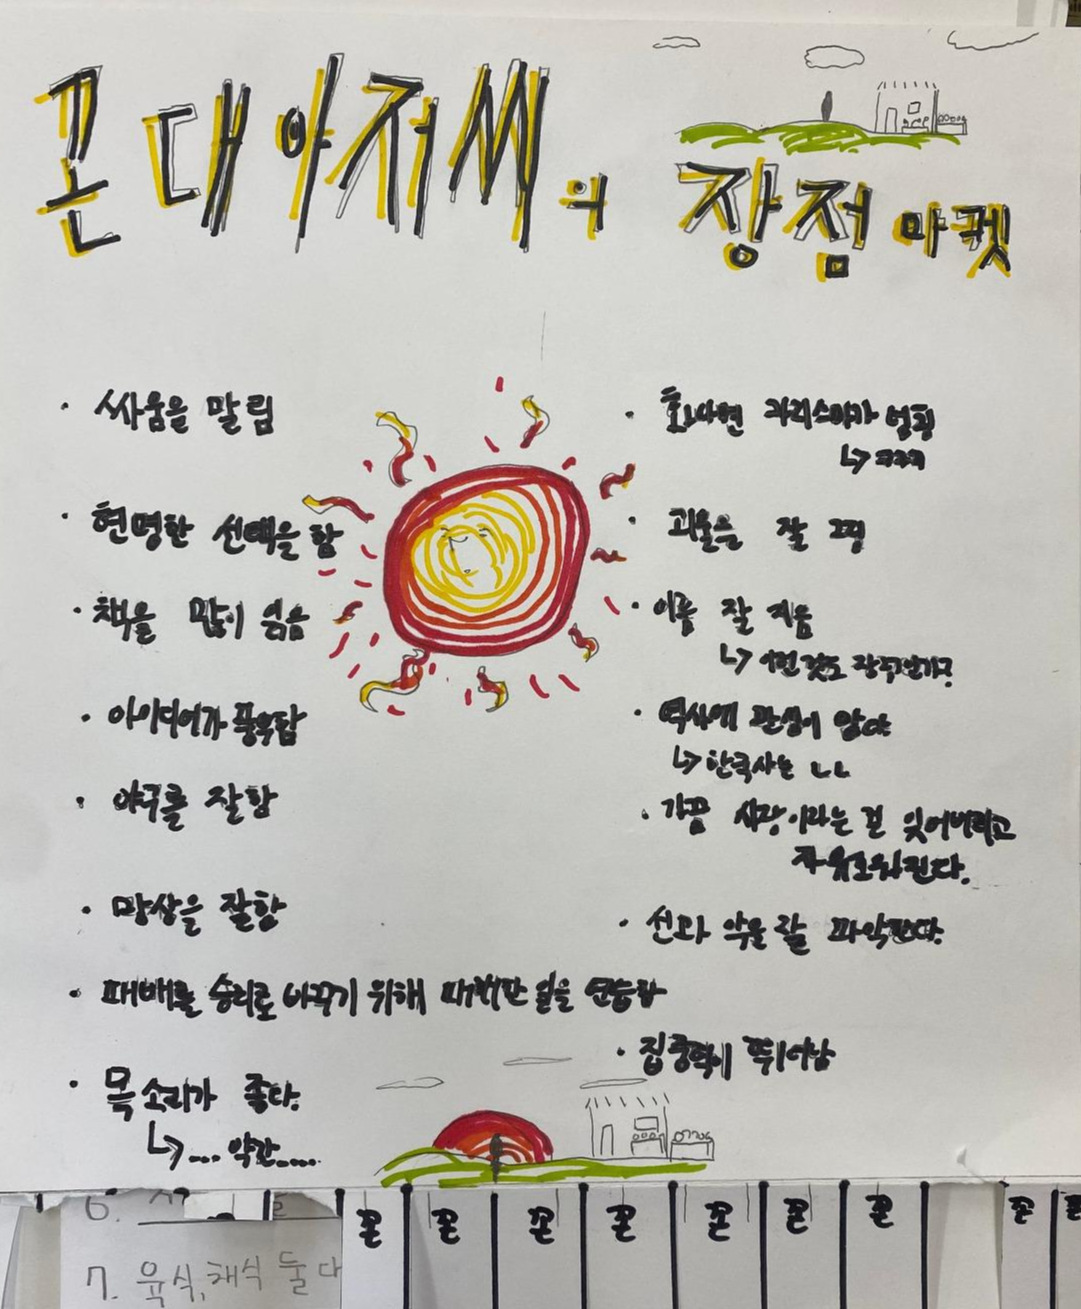 꼰대아저씨의 장점마켓
· 싸움을 말림
· 현명한 선택을 함
· 책을 많이 읽음
· 아이디어가 풍부함
· 야구를 잘함
· 망상을 잘함
· 패배를 승리로 바꾸기 위해 패배한 일을 연습함
· 목소리가 좋다.
↳.... 약간.....
· 화나면 카리스마가 넘침
↳ ㅋㅋㅋ
· 괴물을 잘 그림
· 이름 잘 지음
↳ 이런 것도 장점인가?
· 역사에 관심이 많아
↳ 한국사는 ㄴㄴ
· 가끔 사람이라는 걸 잊어버리고
자유로워진다.
· 선과 악을 잘 파악한다.
· 집중력이 뛰어남
꼰 꼰 꼰 꼰 꼰 꼰 꼰 꼰
6.
7. 육식, 채식 둘 다